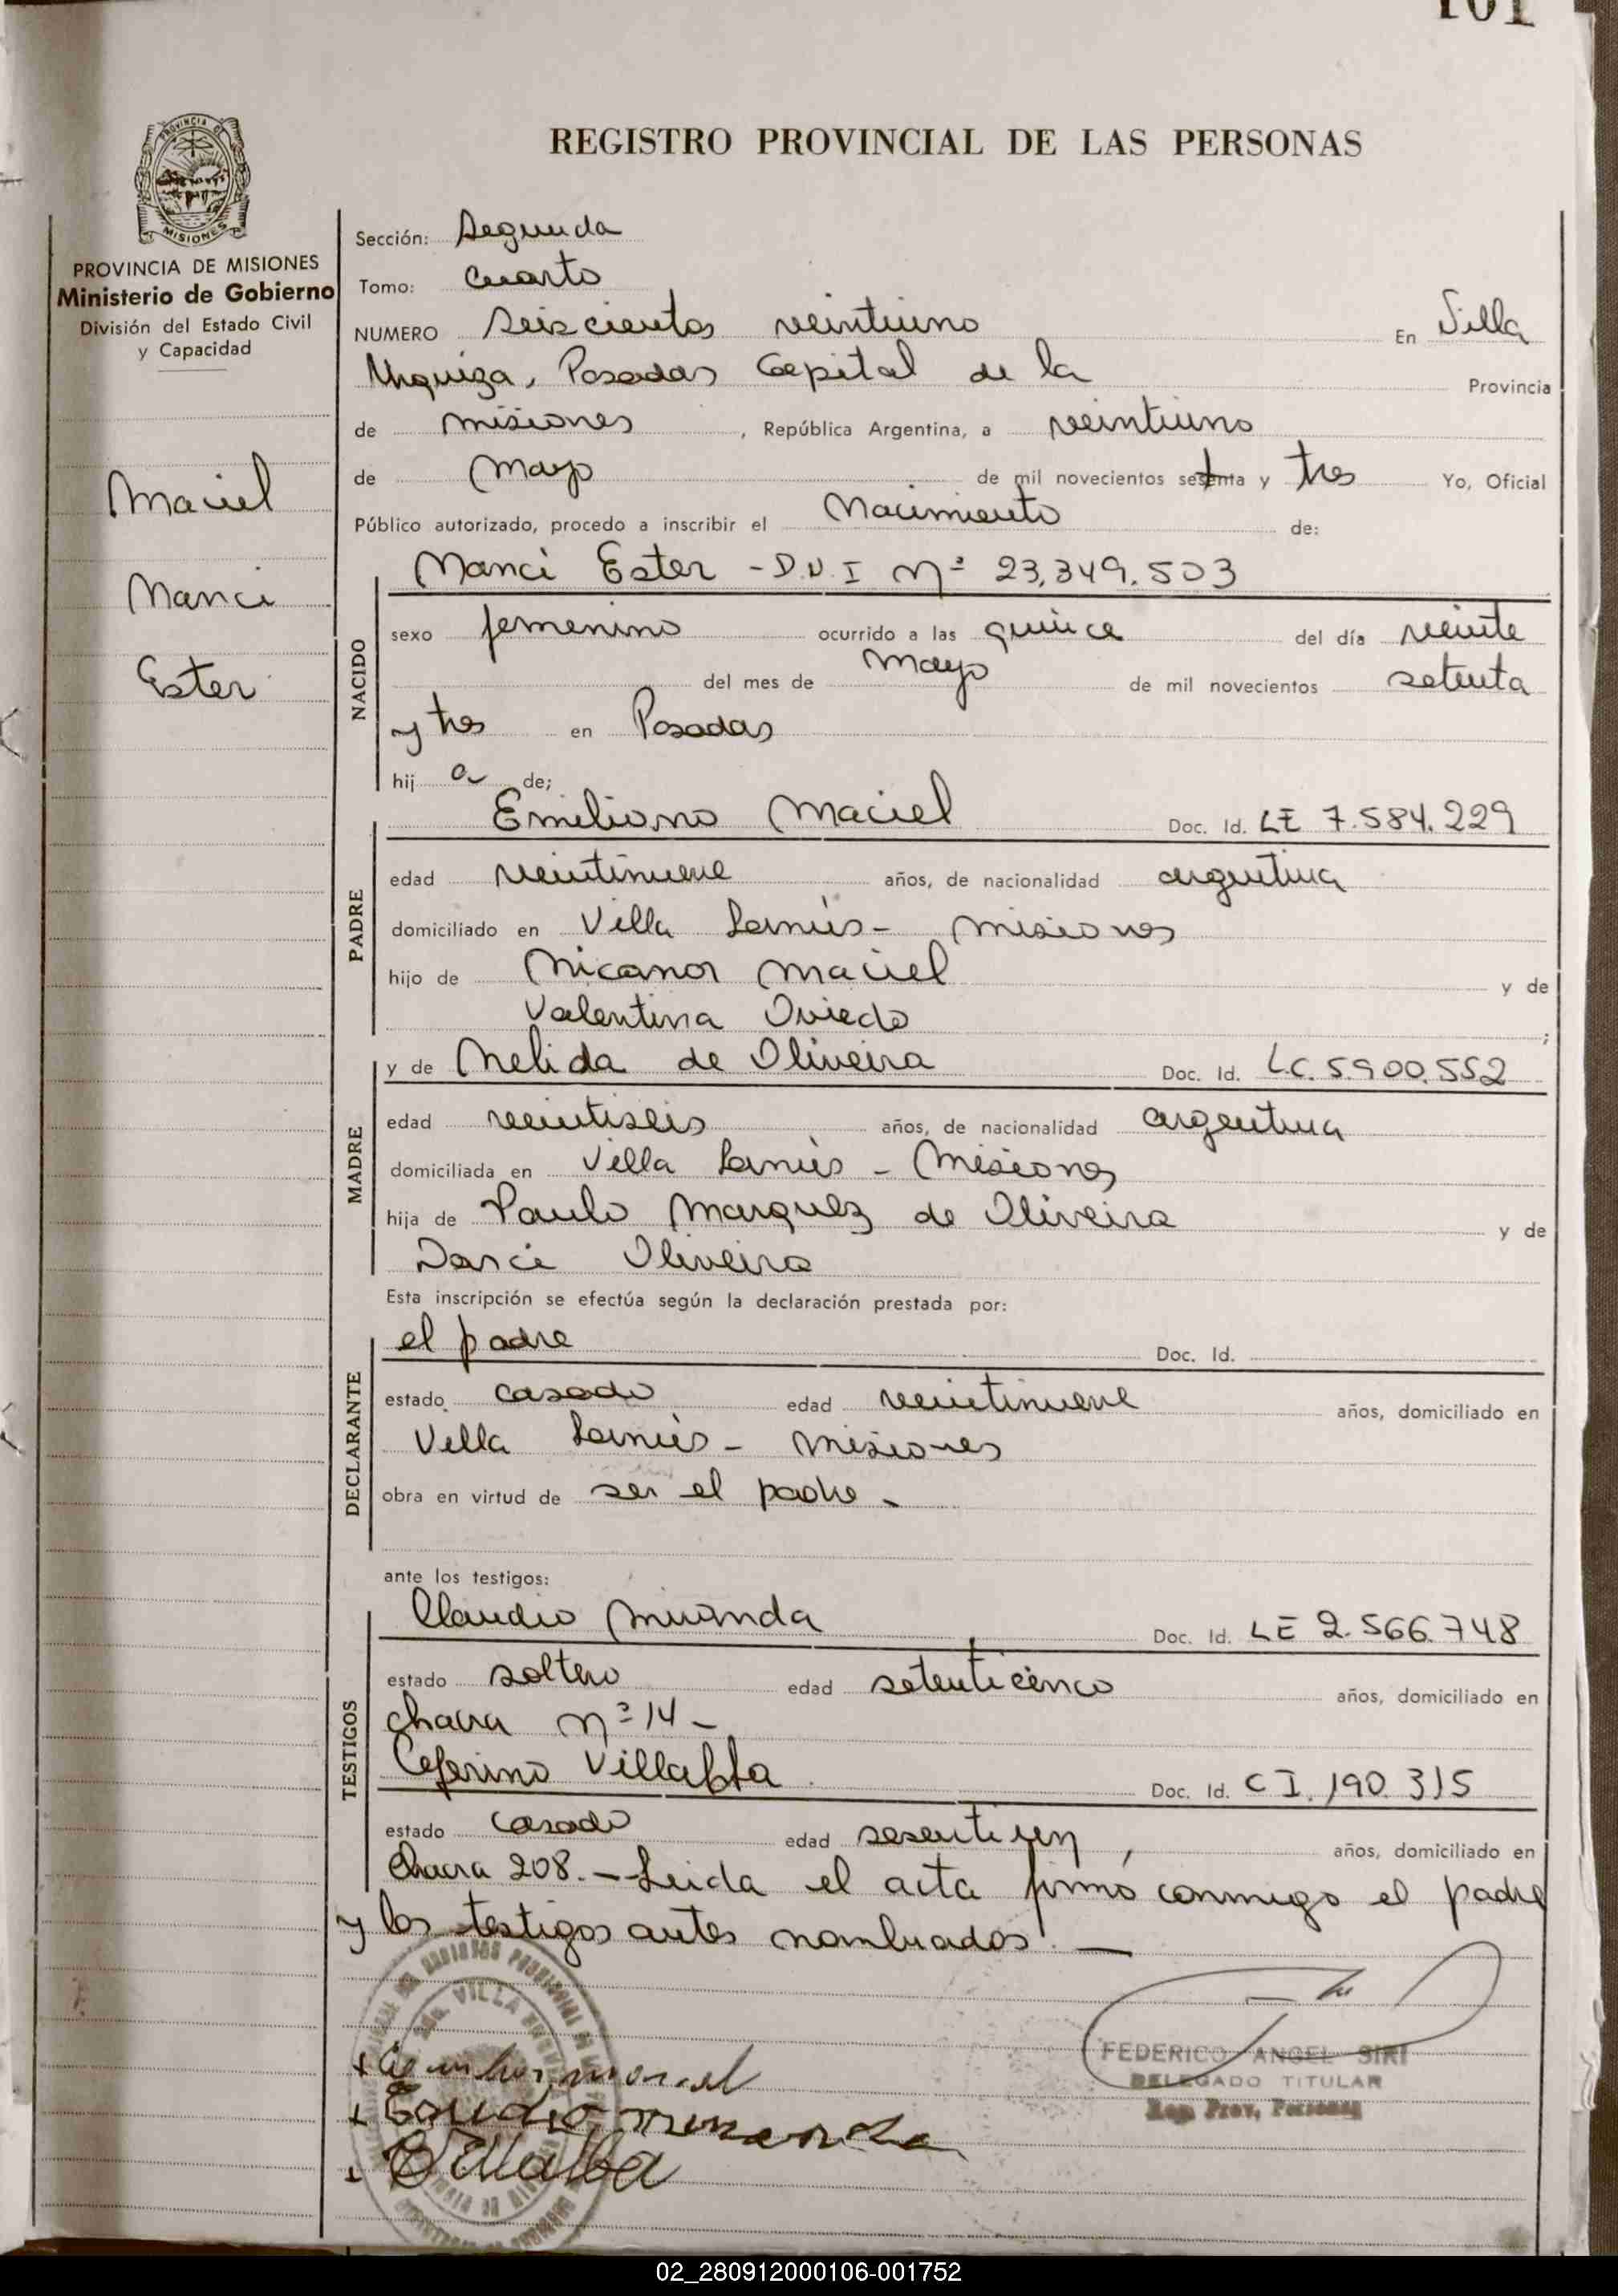 101
REGISTRO PROVINCIAL DE LAS PERSONAS
PROVINCIA DE MISIONES
Ministerio de Gobierno
División del Estado Civil
y Capacidad
Maciel
Nanci
Ester
Sección: Segunda
Tomo: Cuarto
NUMERO Seiscientos veintiuno En Villa
Urquiza, Posadas Capital de la Provincia
de misiones, República Argentina, a veintiuno
de Mayo de mil novecientos setenta y tres Yo, Oficial
Público autorizado, procedo a inscribir el Nacimiento de:
Nanci Ester - D.N.I Nº 23,349.503
NACIDO
sexo femenino ocurrido a las quince del día veinte
del mes de mayo de mil novecientos setenta
y tres en Posadas
hija de;
PADRE
Emiliano Maciel Doc. Id. LE 7.584.229
edad veintinueve años, de nacionalidad argentina
domiciliado en Villa Lanús - misiones
hijo de Nicanor Maciel y de
Valentina Oviedo;
MADRE
y de Nelida de Oliveira Doc. Id. L.C. 5.900.552
edad veintiseis años, de nacionalidad argentina
domiciliada en Villa Lanús - Misiones
hija de Paulo Marquez de Oliveira y de
Darci Oliveira
Esta inscripción se efectúa según la declaración prestada por:
DECLARANTE
el padre Doc. Id.
estado casado edad veintinueve años, domiciliado en
Villa Lanús - misiones
obra en virtud de ser el padre.
ante los testigos:
TESTIGOS
Claudio Miranda Doc. Id. LE 2.566.748
estado soltero edad setenticinco años, domiciliado en
chacra nº 14 -
Ceferino Villalba Doc. Id. C I. 190.315
estado casado edad sesentiun, años, domiciliado en
Chacra 208. - Leida el acta firmó conmigo el padre
y los testigos antes nombrados. -
FEDERICO ANGEL SIRI
DELEGADO TITULAR
Reg. Prov. Personas
Villalba
02_280912000106-001752